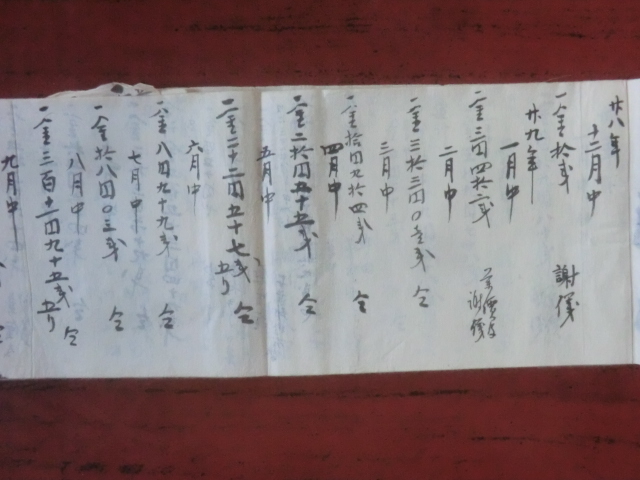 廿八年
十二月中
一金拾戔 謝儀
廿九年
一月中
一金三円四拾二戔 謝儀
二月中
一金三拾三円〇五戔 仝
三月中
一金拾四円九拾四戔 仝
四月中
一金二拾四円五十五戔 仝
五月中
一金二十二円五十七戔五リ 仝
六月中
一金八円九十九戔 仝
七月中
一金拾八円〇三戔 仝
八月中
一金三百十二円九十五戔五リ 仝
九月中